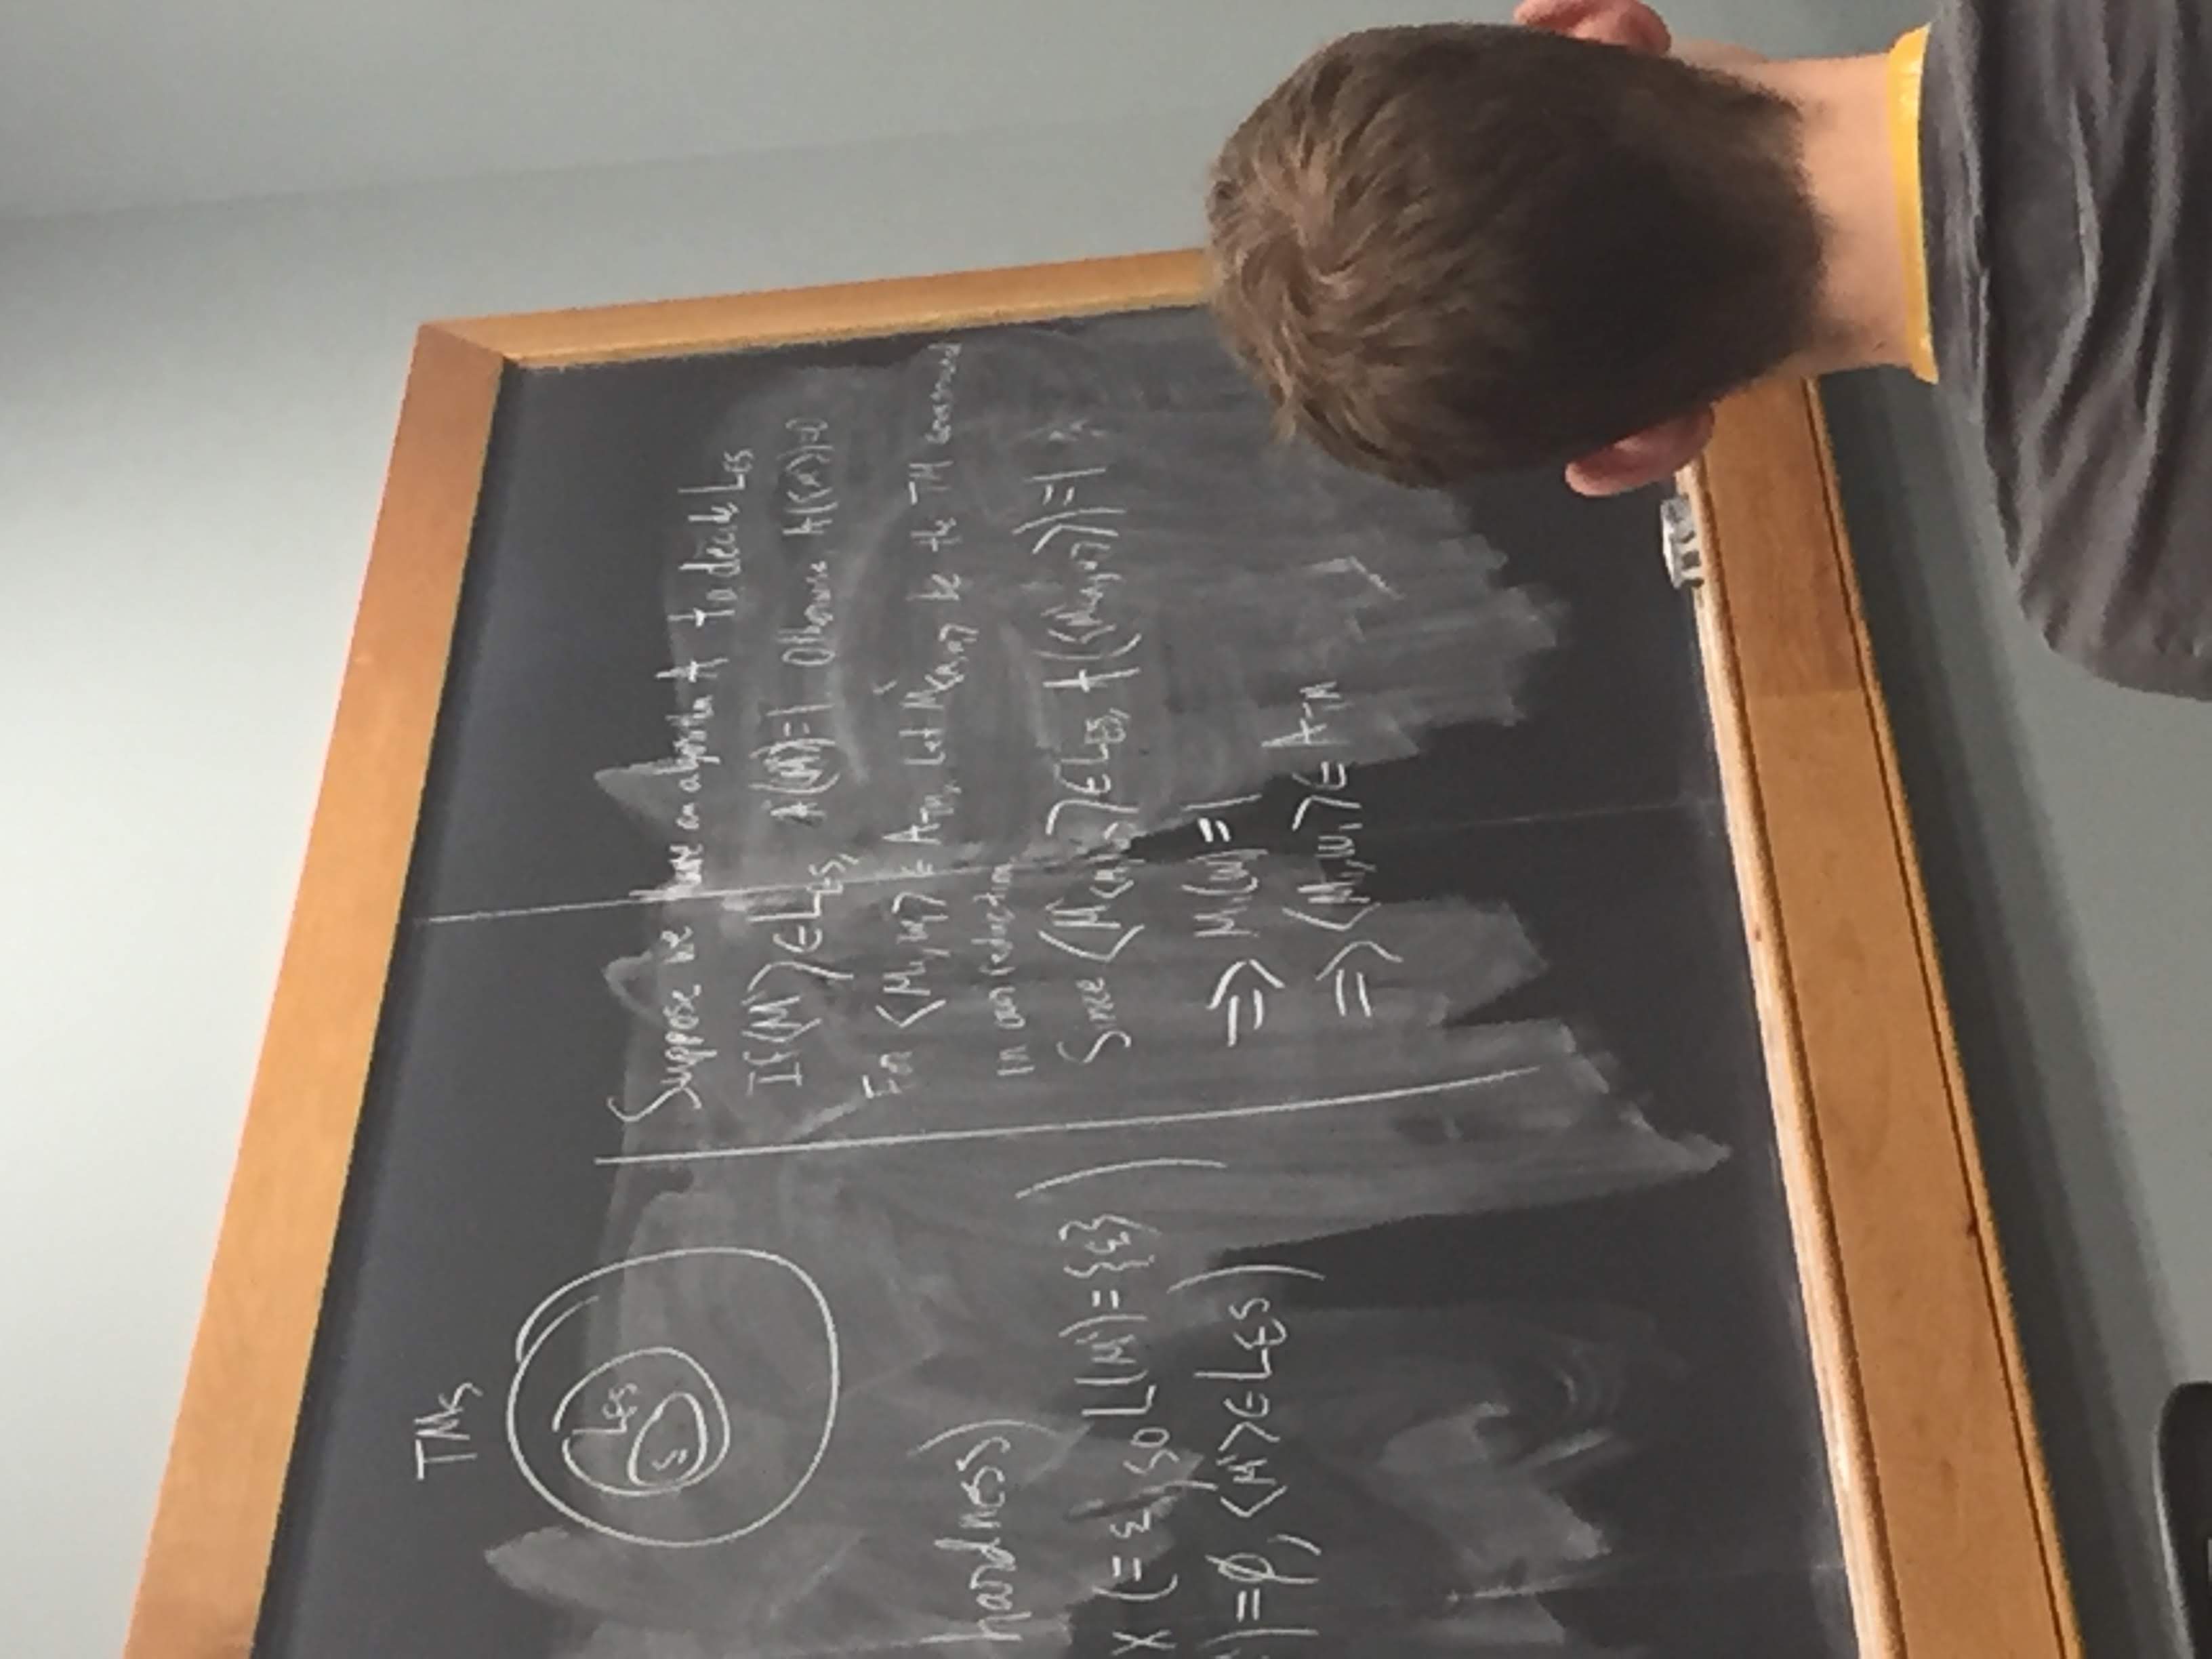 TMs
L_ES
hardness)
x (= ε), so L(M')={ε} )
')=∅, ⟨M'⟩∈L_ES )
Suppose we have an algorithm A to decide L_ES
If ⟨M'⟩∈L_ES, A(⟨M'⟩)=1 Otherwise, A(⟨M'⟩)=0
For ⟨M₁,w₁⟩ ∈ A_TM, Let M'_⟨M₁,w₁⟩ be the TM
in our reduction.
Since ⟨M'_⟨M₁,w₁⟩⟩∈L_ES, A(⟨M'_⟨M₁,w₁⟩⟩)=1
⇒ M₁(w₁)=1
⇒ ⟨M₁,w₁⟩∈ A_TM